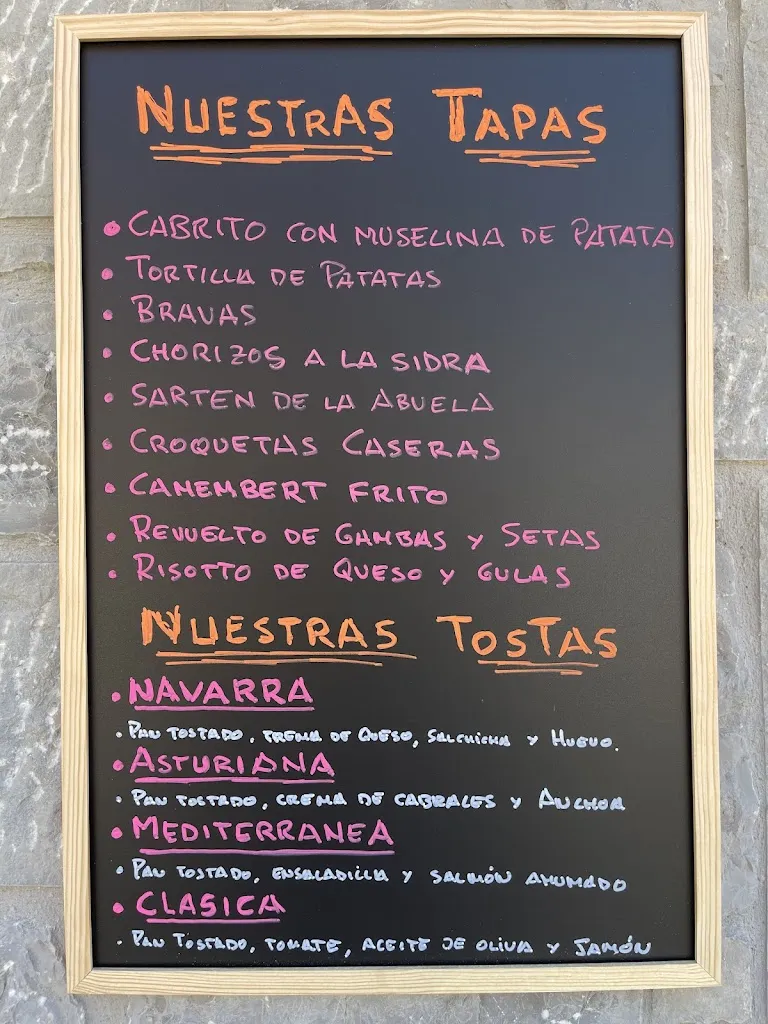 NUESTRAS TAPAS
• CABRITO CON MUSELINA DE PATATA
• TORTILLA DE PATATAS
• BRAVAS
• CHORIZOS A LA SIDRA
• SARTEN DE LA ABUELA
• CROQUETAS CASERAS
• CAMEMBERT FRITO
• REVUELTO DE GAMBAS Y SETAS
• RISOTTO DE QUESO Y GULAS
NUESTRAS TOSTAS
• NAVARRA
• PAN TOSTADO, CREMA DE QUESO, SALCHICHA Y HUEVO.
• ASTURIANA
• PAN TOSTADO, CREMA DE CABRALES Y ANCHOA
• MEDITERRANEA
• PAN TOSTADO, ENSALADILLA Y SALMÓN AHUMADO
• CLASICA
• PAN TOSTADO, TOMATE, ACEITE DE OLIVA Y JAMÓN